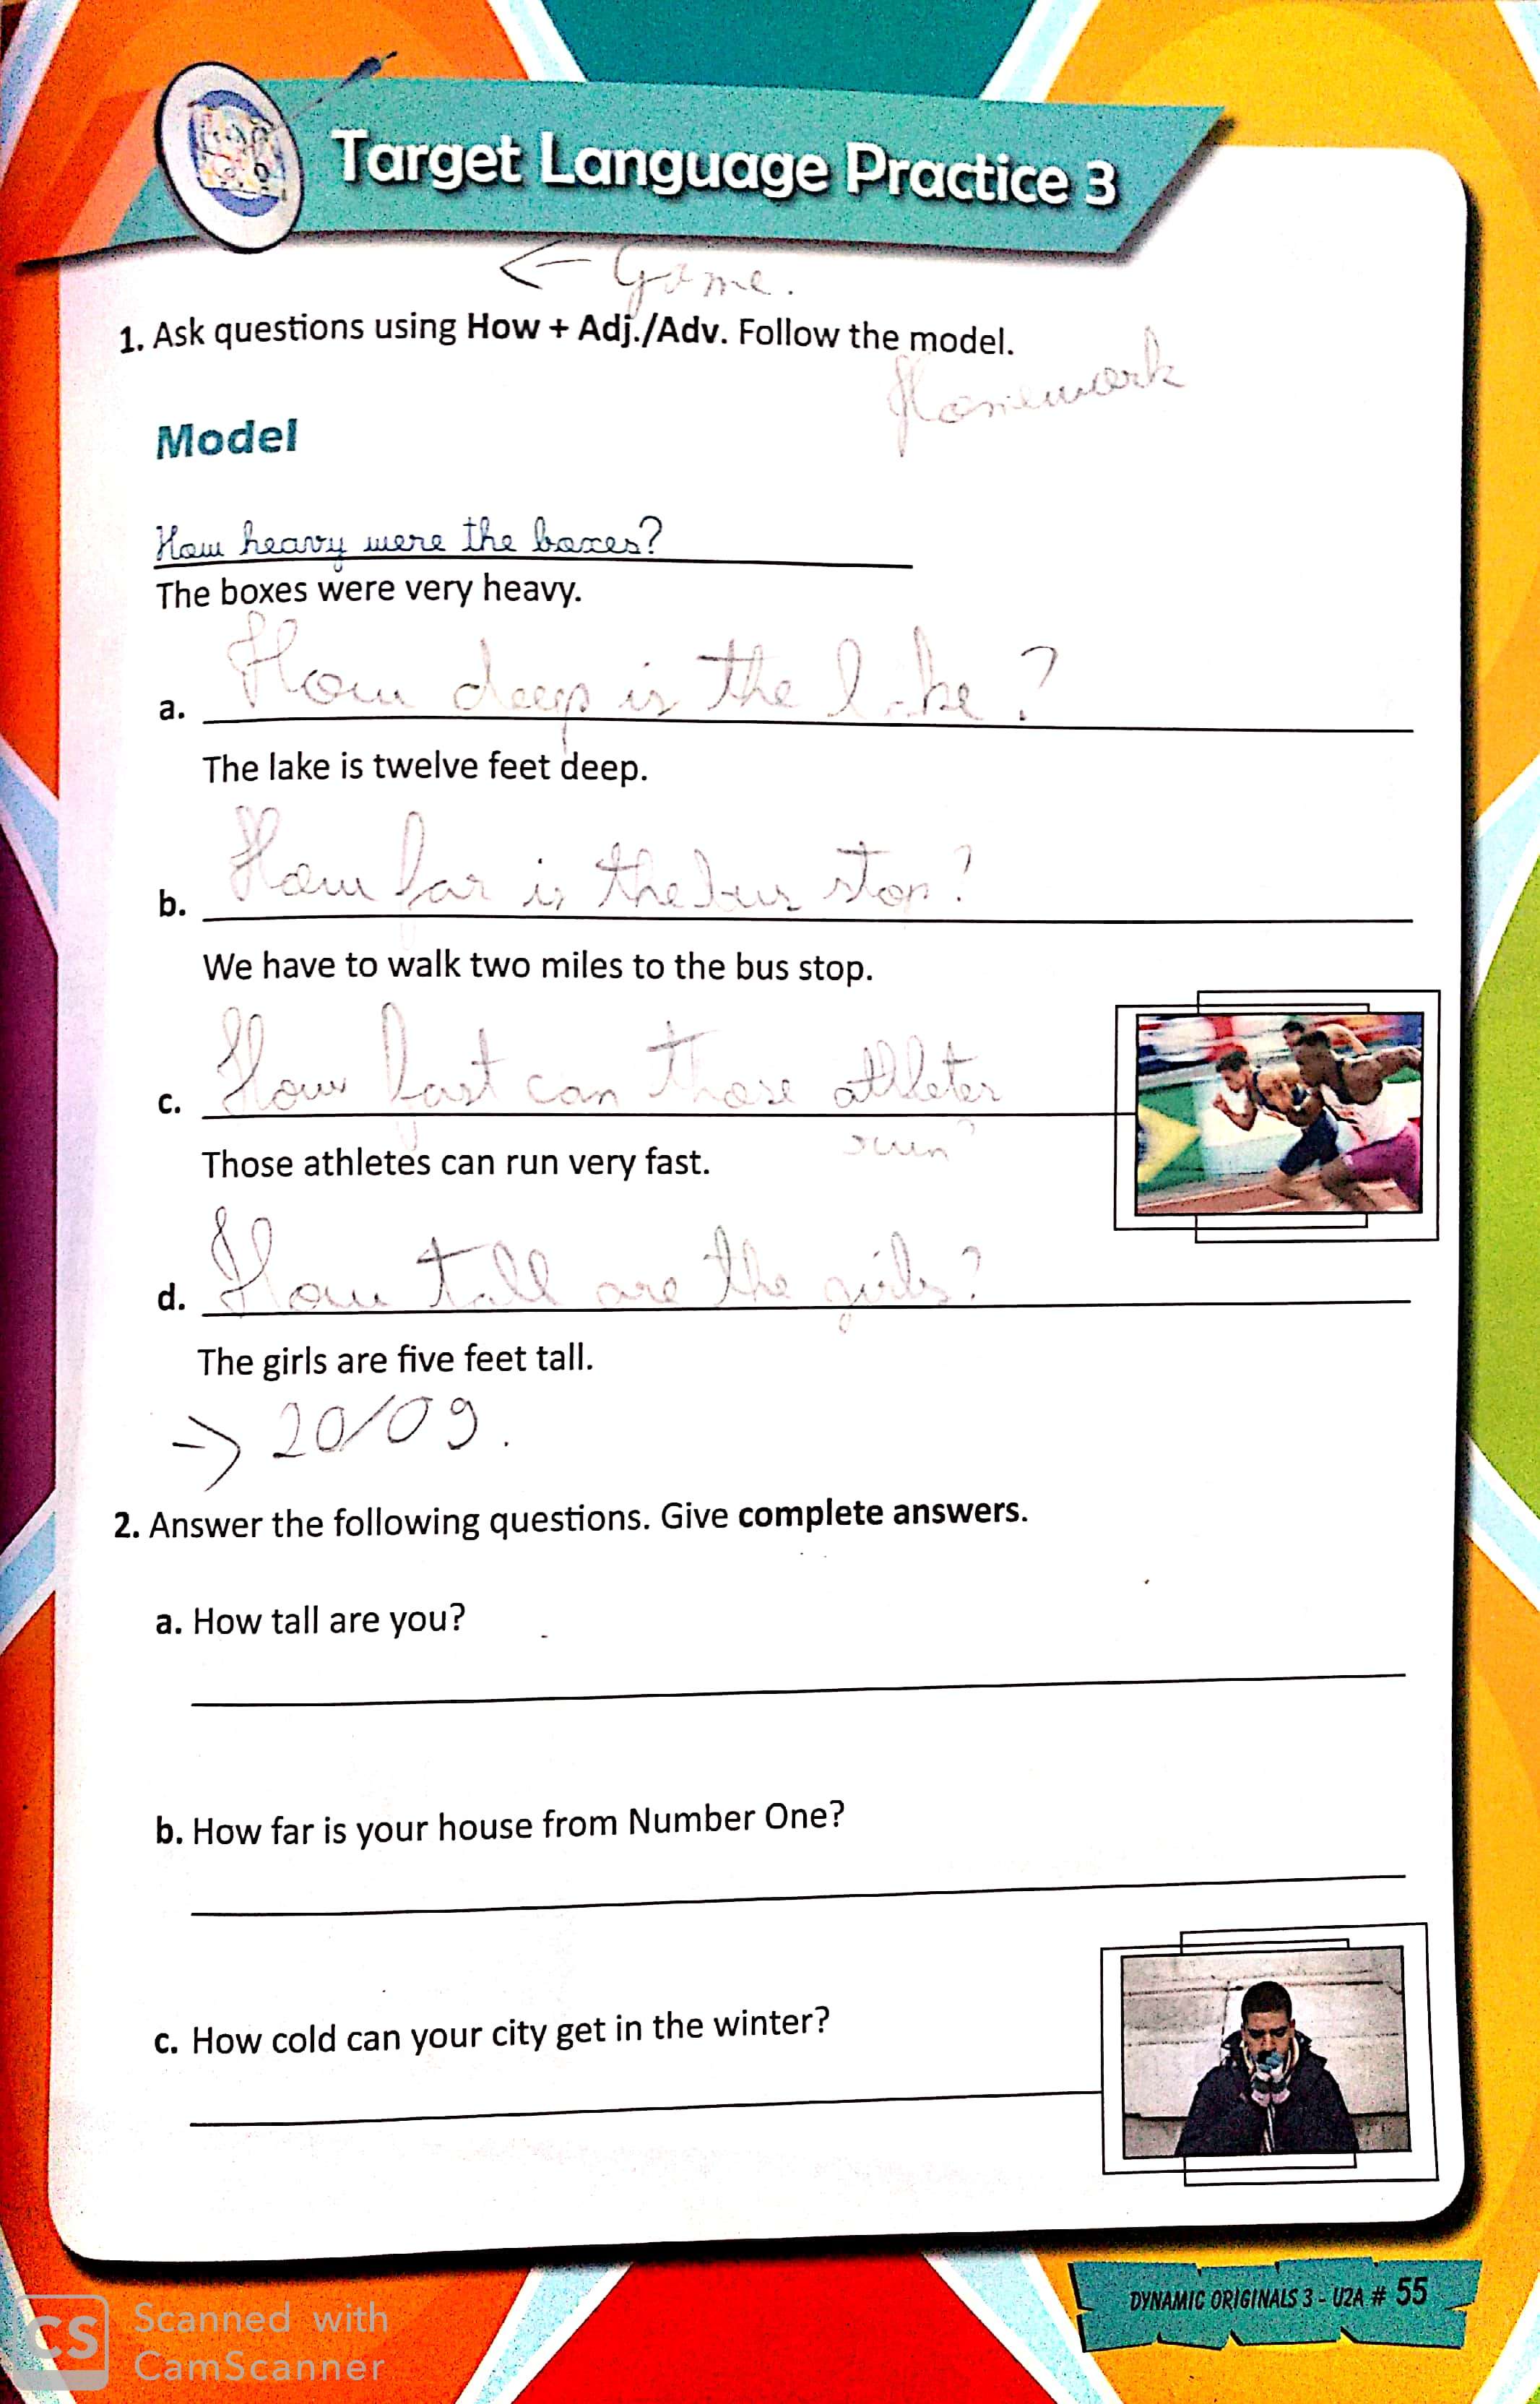 Target Language Practice 3
← Game.
1. Ask questions using How + Adj./Adv. Follow the model.
Homework
Model
How heavy were the boxes?
The boxes were very heavy.
How deep is the lake?
a.
The lake is twelve feet deep.
How far is the bus stop?
b.
We have to walk two miles to the bus stop.
How fast can those athletes
c.
run?
Those athletes can run very fast.
How tall are the girls?
d.
The girls are five feet tall.
→ 20/09.
2. Answer the following questions. Give complete answers.
a. How tall are you?
b. How far is your house from Number One?
c. How cold can your city get in the winter?
DYNAMIC ORIGINALS 3 - U2A # 55
CS Scanned with
CamScanner